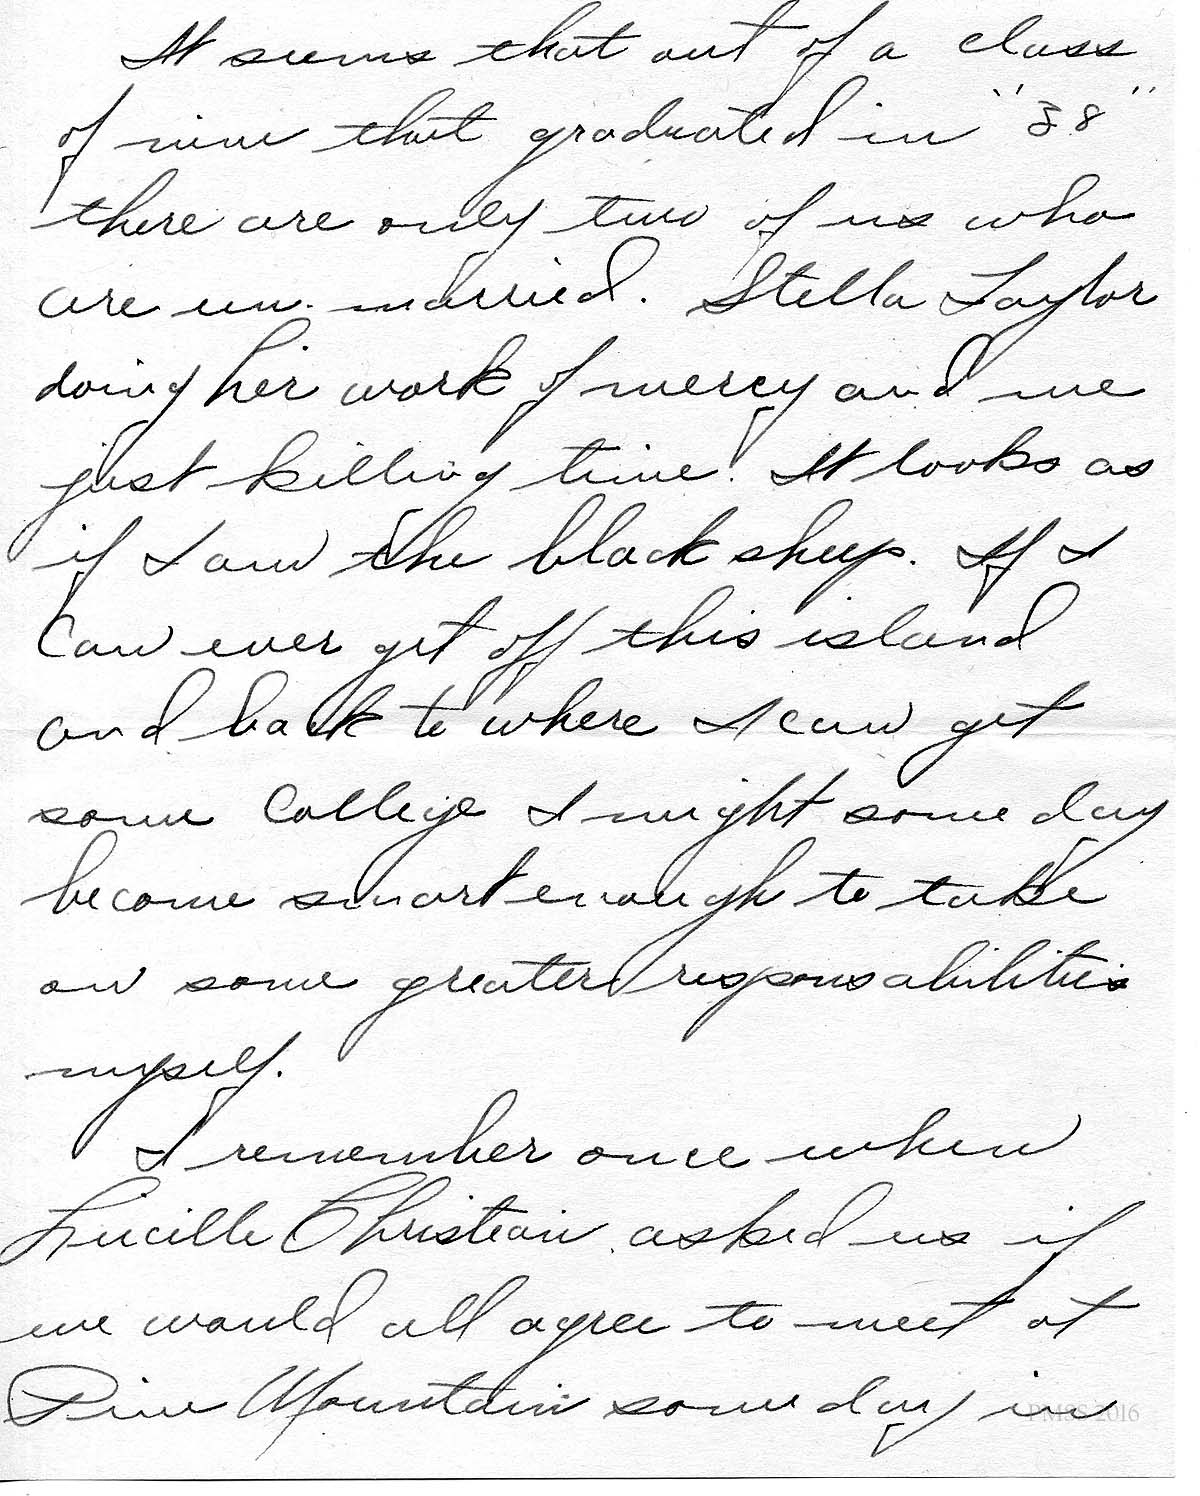 It seems that out of a class
of nine that graduated in "38"
there are only two of us who
are un-married. Stella Taylor
doing her work of mercy and me
just killing time. It looks as
if I am the black sheep. If I
Can ever get off this island
and back to where I can get
some College I might some day
become smart enough to take
on some greater responsabilities
myself.
I remember once when
Lucille Christian asked us if
we would all agree to meet at
Pine Mountain some day in
PMSS 2016